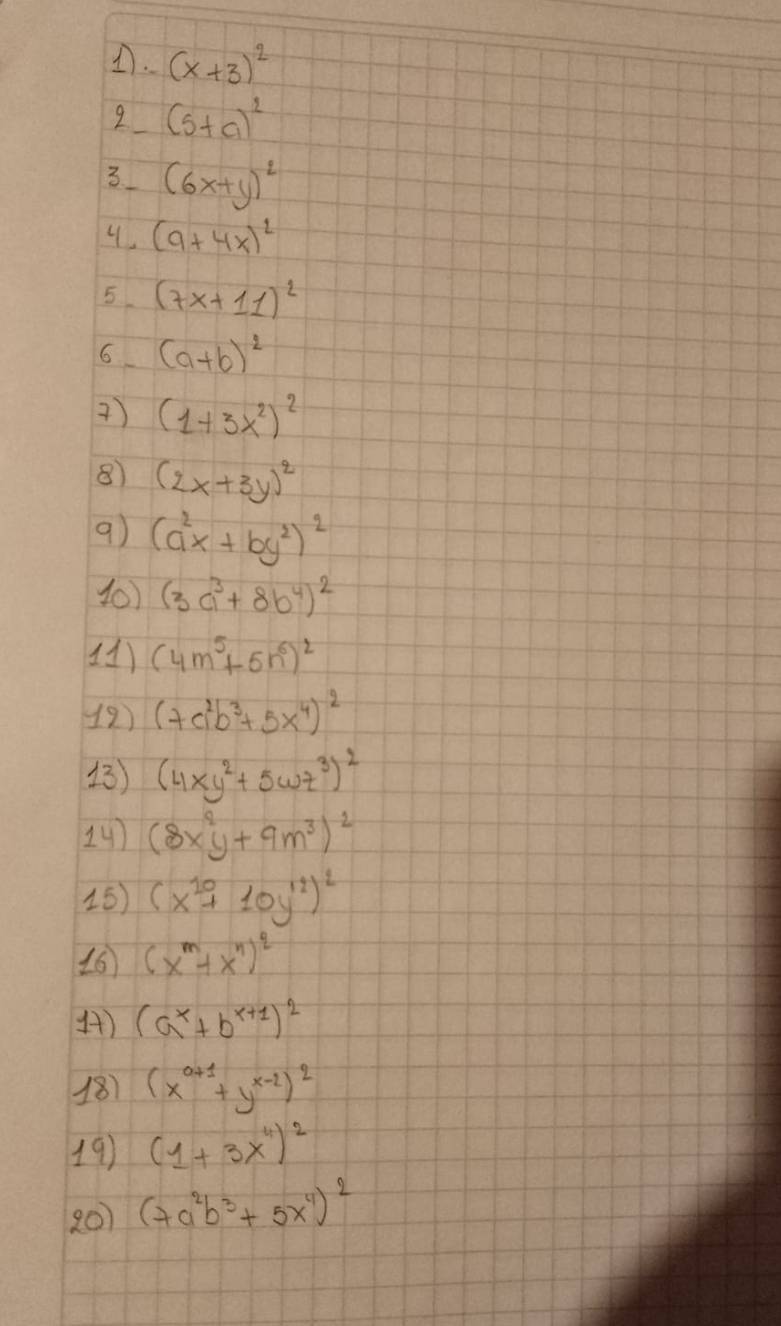 1).- (x+3)²
2- (5+a)²
3- (6x+y)²
4. (9+4x)²
5- (7x+11)²
6- (a+b)²
7) (1+3x²)²
8) (2x+3y)²
9) (a²x + by²)²
10) (3a³+8b⁴)²
11) (4m⁵+5n⁶)²
12) (7a²b³+5x⁴)²
13) (4xy²+5wz³)²
14) (8x²y+9m³)²
15) (x¹⁰+ 10y¹²)²
16) (xᵐ+xⁿ)²
17) (aˣ+bˣ⁺¹)²
18) (xᵃ⁺¹+yˣ⁻²)²
19) (1+3x⁴)²
20) (7a²b³+5x⁴)²